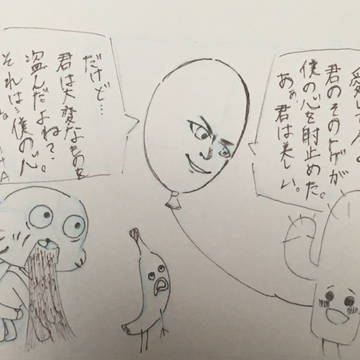 君のそのトゲが
僕の心を射止めた。
あぁ君は美しい。
だけど…
君は大変なものを
盗んだよね?
それは…僕の心。